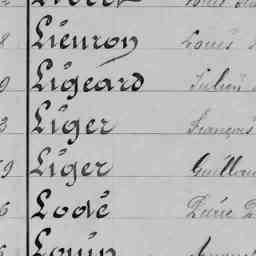 8 Liéuron Louis
9 Ligeard Julien
3 Liger François
9 Liger Guillau
6 Lodé Pierre
Louin